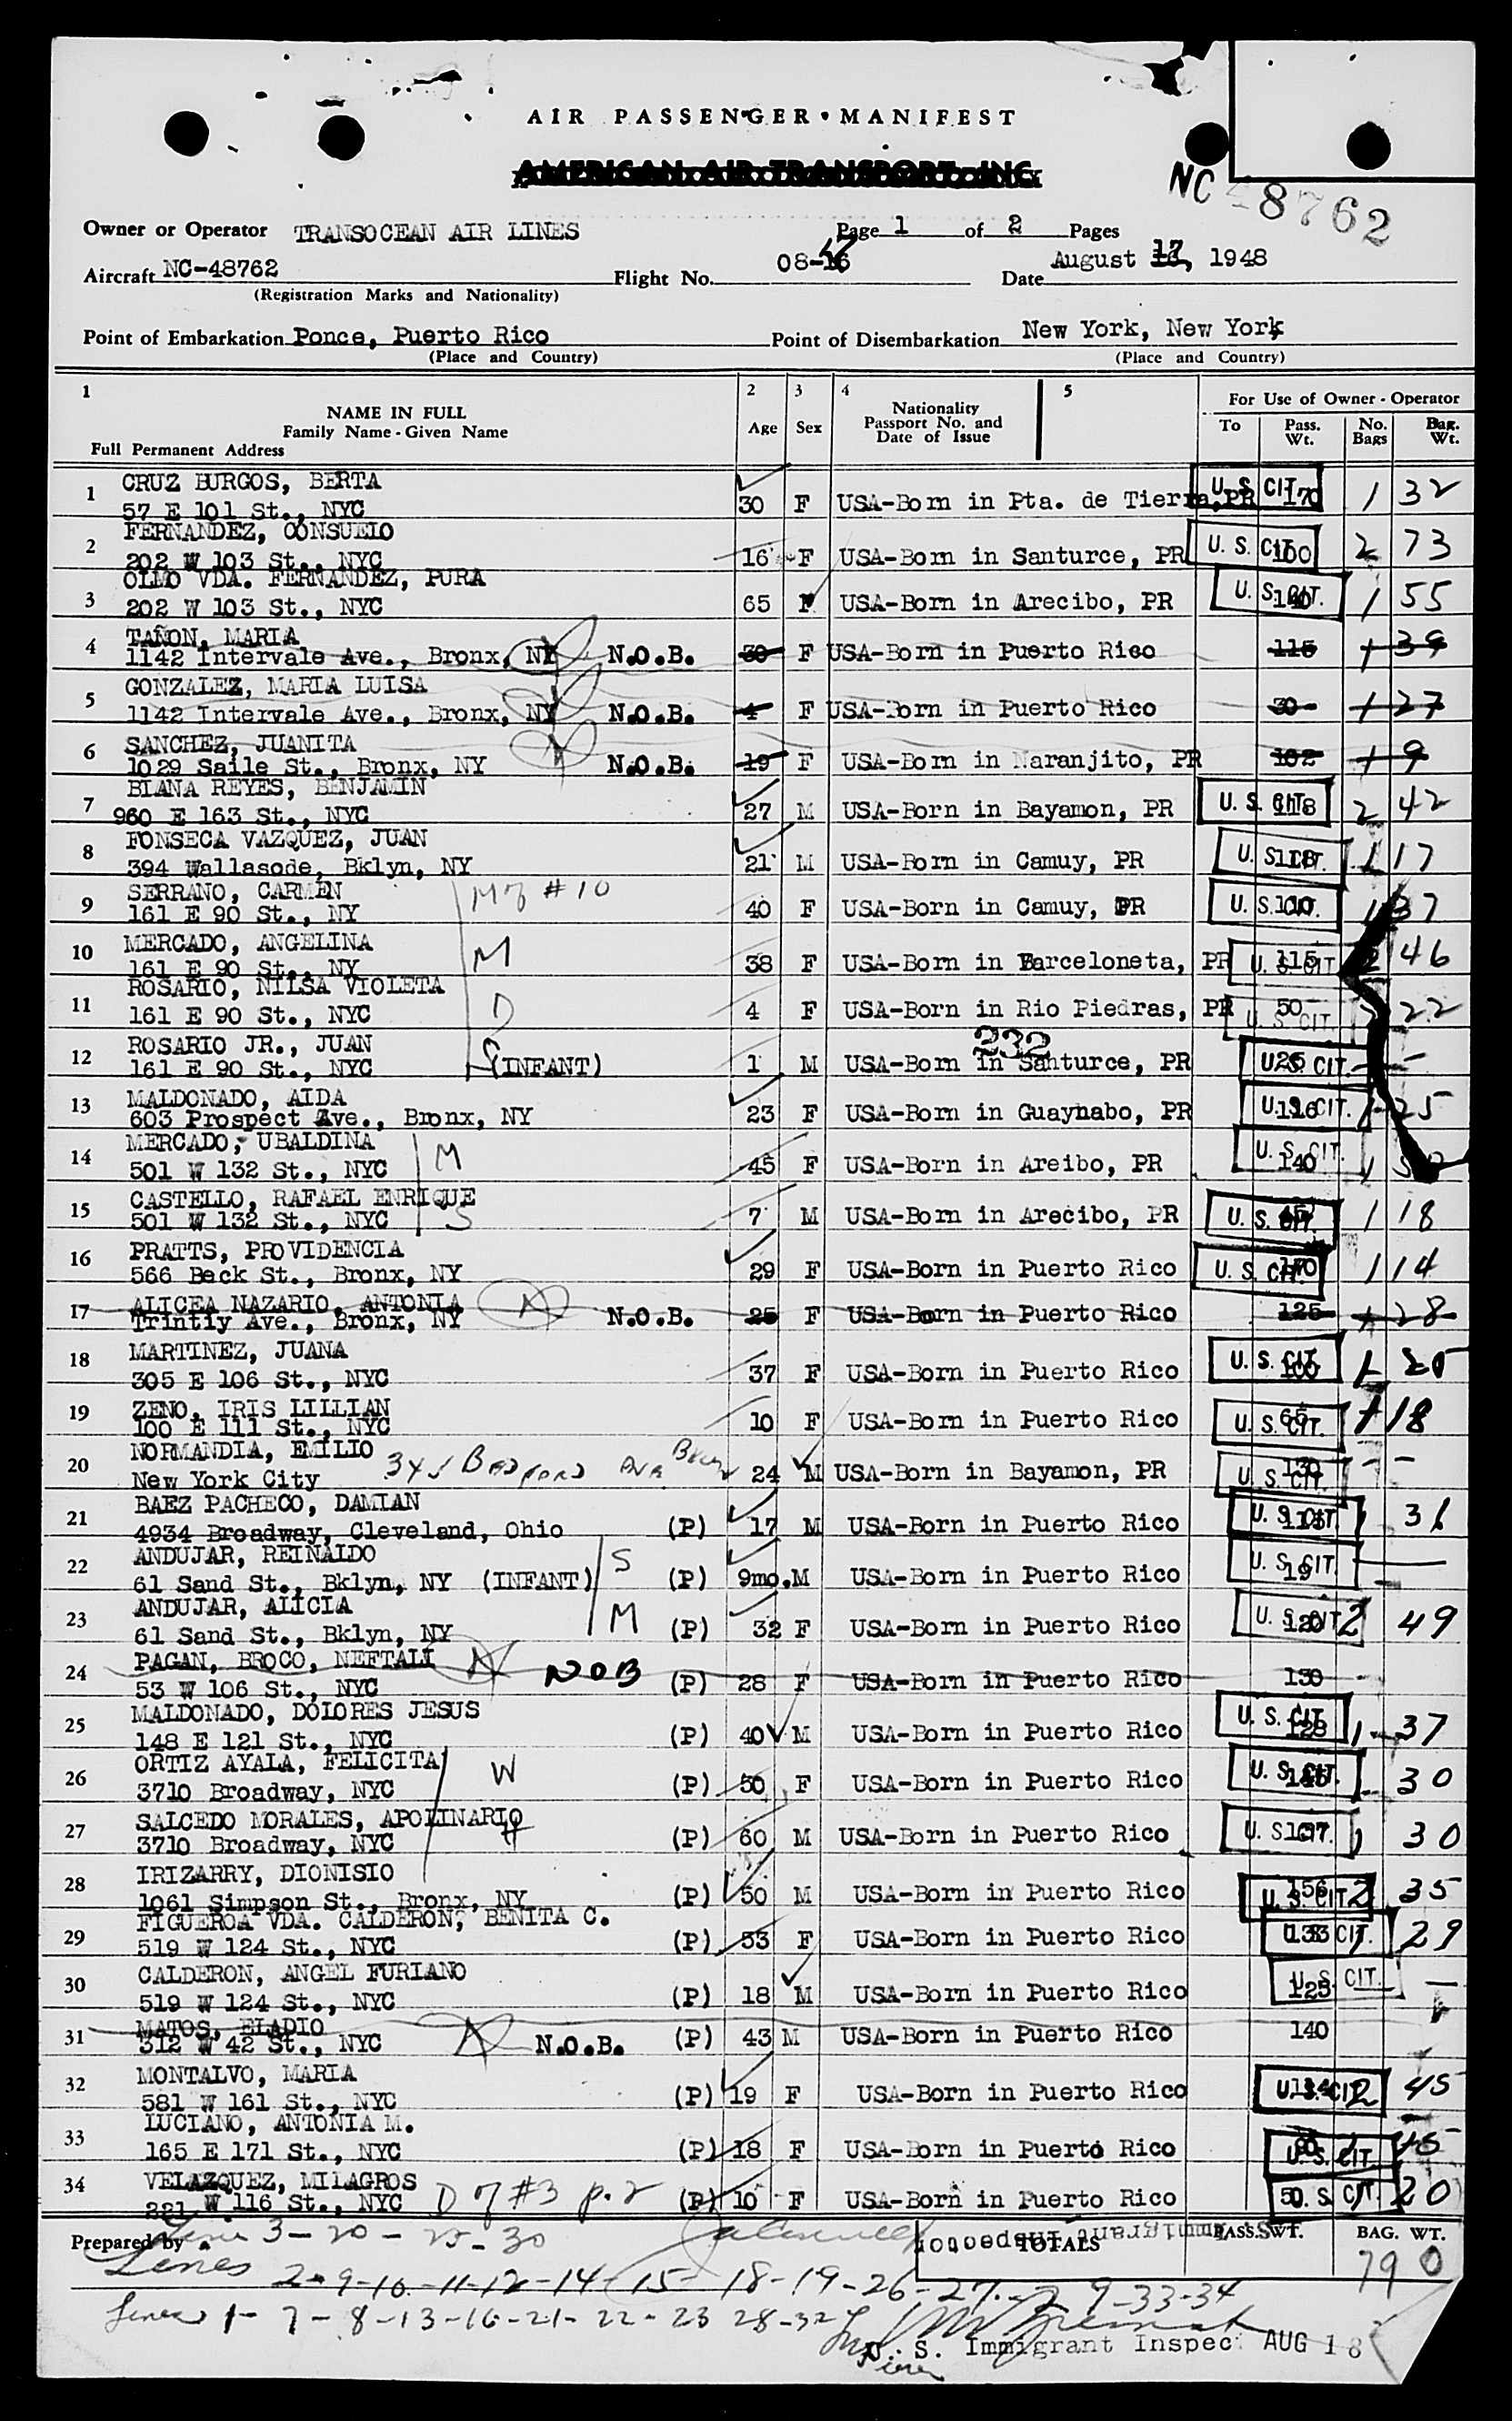 AIR PASSENGER MANIFEST
AMERICAN AIR TRANSPORT, INC.
NC-48762
Owner or Operator TRANSOCEAN AIR LINES Page 1 of 2 Pages
Aircraft NC-48762 Flight No. 08-17 Date August 17, 1948
(Registration Marks and Nationality)
Point of Embarkation Ponce, Puerto Rico Point of Disembarkation New York, New York
(Place and Country) (Place and Country)
1 2 3 4 5 For Use of Owner - Operator
NAME IN FULL Age Sex Nationality To Pass. Wt. No. Bags Bag. Wt.
Family Name - Given Name Passport No. and
Full Permanent Address Date of Issue
1 CRUZ BURGOS, BERTA
57 E 101 St., NYC 30 F USA-Born in Pta. de Tierra, PR U. S. CIT. 170 1 32
2 FERNANDEZ, CONSUELO
202 W 103 St., NYC 16 F USA-Born in Santurce, PR U. S. CIT. 100 2 73
3 OLMO VDA. FERNANDEZ, PURA
202 W 103 St., NYC 65 F USA-Born in Arecibo, PR U. S. CIT. 140 1 55
4 TAÑON, MARIA
1142 Intervale Ave., Bronx, NY N.O.B. 30 F USA-Born in Puerto Rico 115 1 39
5 GONZALEZ, MARIA LUISA
1142 Intervale Ave., Bronx, NY N.O.B. 4 F USA-Born in Puerto Rico 30 1 27
6 SANCHEZ, JUANITA
1029 Saile St., Bronx, NY N.O.B. 19 F USA-Born in Naranjito, PR 102 1 9
7 BIANA REYES, BENJAMIN
960 E 163 St., NYC 27 M USA-Born in Bayamon, PR U. S. CIT. 118 2 42
8 FONSECA VAZQUEZ, JUAN
394 Wallasode, Bklyn, NY 21 M USA-Born in Camuy, PR U. S. CIT. 118 1 17
9 SERRANO, CARMEN M of #10
161 E 90 St., NY 40 F USA-Born in Camuy, PR U. S. CIT. 100 1 37
10 MERCADO, ANGELINA M
161 E 90 St., NY 38 F USA-Born in Barceloneta, PR U. S. CIT. 115 2 46
11 ROSARIO, NILSA VIOLETA
161 E 90 St., NYC D 4 F USA-Born in Rio Piedras, PR U. S. CIT. 50 22
232
12 ROSARIO JR., JUAN
161 E 90 St., NYC S (INFANT) 1 M USA-Born in Santurce, PR U. S. CIT. 25 -
13 MALDONADO, AIDA
603 Prospect Ave., Bronx, NY 23 F USA-Born in Guaynabo, PR U. S. CIT. 116 1 25
14 MERCADO, UBALDINA M
501 W 132 St., NYC 45 F USA-Born in Areibo, PR U. S. CIT. 140 1
15 CASTELLO, RAFAEL ENRIQUE
501 W 132 St., NYC S 7 M USA-Born in Arecibo, PR U. S. CIT. 1 18
16 PRATTS, PROVIDENCIA
566 Beck St., Bronx, NY 29 F USA-Born in Puerto Rico U. S. CIT. 170 1 14
17 ALICEA NAZARIO, ANTONIA
Trintiy Ave., Bronx, NY N.O.B. 25 F USA-Born in Puerto Rico 125 1 28
18 MARTINEZ, JUANA
305 E 106 St., NYC 37 F USA-Born in Puerto Rico U. S. CIT. 100 1 25
19 ZENO, IRIS LILLIAN
100 E 111 St., NYC 10 F USA-Born in Puerto Rico U. S. CIT. 65 1 18
20 NORMANDIA, EMILIO
New York City Bedford Ave Bklyn 24 M USA-Born in Bayamon, PR U. S. CIT. 130 - -
21 BAEZ PACHECO, DAMIAN
4934 Broadway, Cleveland, Ohio (P) 17 M USA-Born in Puerto Rico U. S. CIT. 115 1 31
22 ANDUJAR, REINALDO S
61 Sand St., Bklyn, NY (INFANT) (P) 9mo. M USA-Born in Puerto Rico U. S. CIT. 19
23 ANDUJAR, ALICIA M
61 Sand St., Bklyn, NY (P) 32 F USA-Born in Puerto Rico U. S. CIT. 120 2 49
24 PAGAN, BROCO, NEFTALI NOB
53 W 106 St., NYC (P) 28 F USA-Born in Puerto Rico 130
25 MALDONADO, DOLORES JESUS
148 E 121 St., NYC (P) 40 M USA-Born in Puerto Rico U. S. CIT. 128 1 37
26 ORTIZ AYALA, FELICITA W
3710 Broadway, NYC (P) 50 F USA-Born in Puerto Rico U. S. CIT. 145 1 30
27 SALCEDO MORALES, APOLINARIO H
3710 Broadway, NYC (P) 60 M USA-Born in Puerto Rico U. S. CIT. 137 1 30
28 IRIZARRY, DIONISIO
1061 Simpson St., Bronx, NY (P) 50 M USA-Born in Puerto Rico U. S. CIT. 156 2 35
29 FIGUEROA VDA. CALDERON, BENITA C.
519 W 124 St., NYC (P) 53 F USA-Born in Puerto Rico U. S. CIT. 133 1 29
30 CALDERON, ANGEL FURIANO
519 W 124 St., NYC (P) 18 M USA-Born in Puerto Rico U. S. CIT. 125 -
31 MATOS, ELADIO
312 W 42 St., NYC N.O.B. (P) 43 M USA-Born in Puerto Rico 140
32 MONTALVO, MARIA
581 W 161 St., NYC (P) 19 F USA-Born in Puerto Rico U. S. CIT. 2 45
33 LUCIANO, ANTONIA M.
165 E 171 St., NYC (P) 18 F USA-Born in Puerto Rico U. S. CIT. 90 1 15
34 VELAZQUEZ, MILAGROS
281 W 116 St., NYC D of #3 p. 2 (P) 10 F USA-Born in Puerto Rico U. S. CIT. 50 1 20
Prepared by Lines 3-20-25-30 TOTALS PASS. WT. BAG. WT.
U. S. Immigrant Inspector 790
Lines 2-9-10-11-12-14-15-18-19-26-27-29-33-34
Lines 1-7-8-13-16-21-22-23 28-32
U. S. Immigrant Inspec. AUG 18